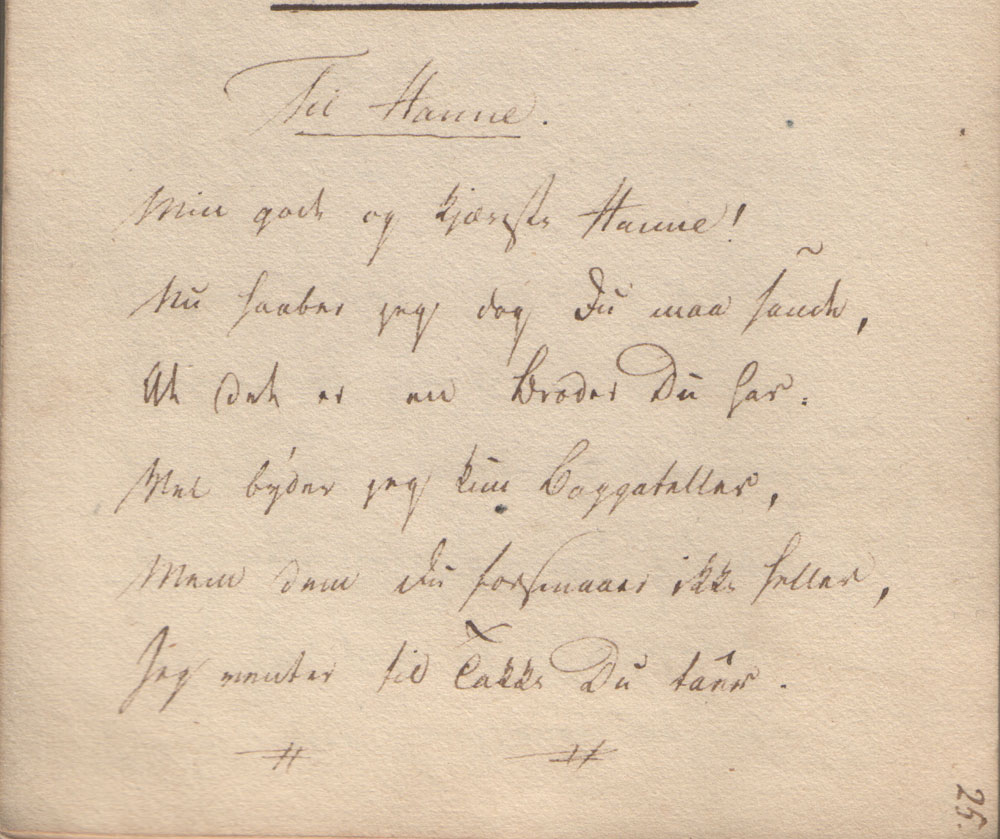 Til Hanne.
Min gode og kjæreste Hanne!
Nu haaber jeg dog Du maa sande,
At det er en Broder Du har.
Vel byder jeg kun Baggateller,
Men dem Du forsmaaer ikke heller,
Jeg venter til Takke Du taer.
25.